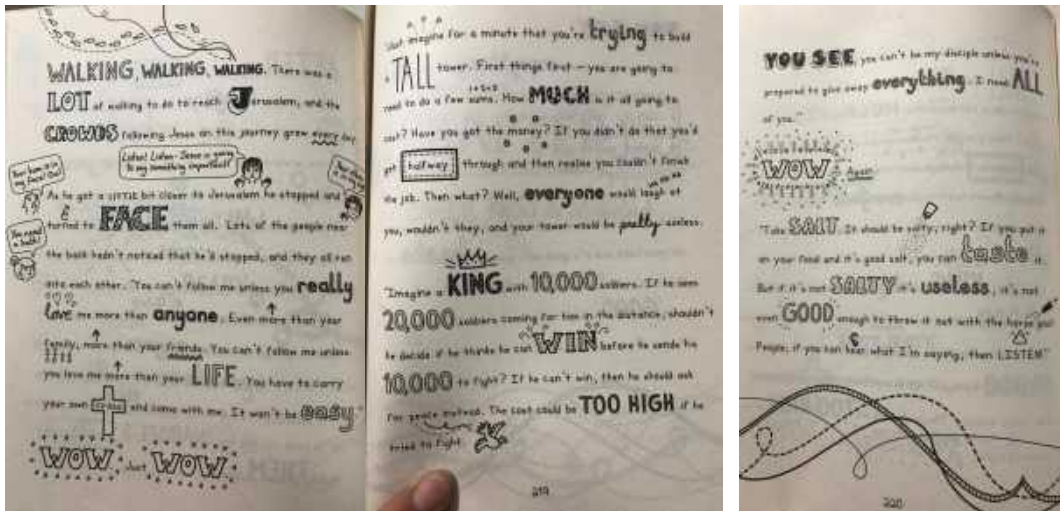 WALKING, WALKING, WALKING. There was a
LOT of walking to do to reach Jerusalem, and the
CROWDS following Jesus on this journey grew every day.
Listen! Listen - Jesus is going
to say something important!
Your bum is in
my face! Ow!
As he got a LITTLE bit closer to Jerusalem he stopped and
turned to FACE them all. Lots of the people near
You need
a bath!
the back hadn't noticed that he'd stopped, and they all ran
into each other. "You can't follow me unless you really
love me more than anyone. Even more than your
family, more than your friends. You can't follow me unless
you love me more than your LIFE. You have to carry
your own cross and come with me. It won't be easy."
WOW. Just WOW.
"Just imagine for a minute that you're trying to build
a TALL tower. First things first – you are going to
need to do a few sums. How MUCH is it all going to
cost? Have you got the money? If you didn't do that you'd
get halfway through and then realise you couldn't finish
the job. Then what? Well, everyone would laugh at
you, wouldn't they, and your tower would be really useless.
"Imagine a KING with 10,000 soldiers. If he sees
20,000 soldiers coming for him in the distance, shouldn't
he decide if he thinks he can WIN before he sends his
10,000 to fight? If he can't win, then he should ask
for peace instead. The cost could be TOO HIGH if he
tried to fight.
219
YOU SEE you can't be my disciple unless you're
prepared to give away everything. I need ALL
of you."
WOW Again.
"Take SALT. It should be salty, right? If you put it
on your food and it's good salt, you can taste it.
But if it's not SALTY it's useless, it's not
even GOOD enough to throw it out with the horse poo!
People, if you can hear what I'm saying, then LISTEN!"
220